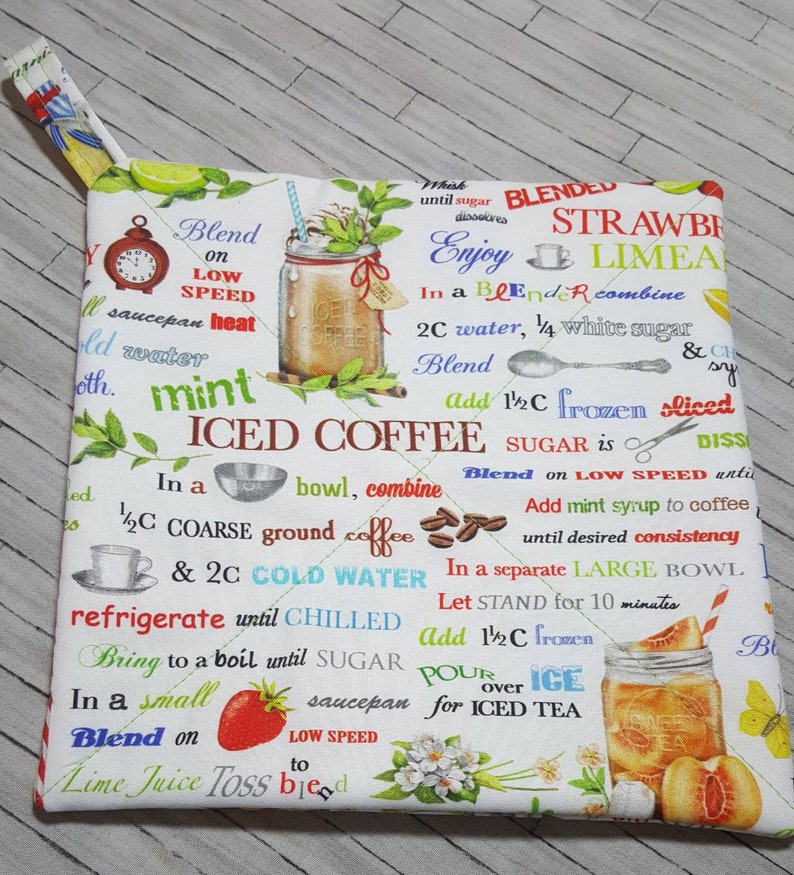 Whisk
until sugar
dissolves
BLENDED
STRAWBE
Enjoy
LIMEA
Y
Blend
on
LOW
SPEED
ICED
COFFEE
In a BLENDER combine
ll saucepan heat
2C water, 1/4 white sugar
old water
Blend
& CH
sy
oth.
mint
Add 1½C frozen sliced
ICED COFFEE
SUGAR is DISS
Blend on LOW SPEED until
In a bowl, combine
ed.
Add mint syrup to coffee
½C COARSE ground coffee
until desired consistency
& 2C COLD WATER
In a separate LARGE BOWL
Let STAND for 10 minutes
refrigerate until CHILLED
Add 1½C frozen
Bl
Bring to a boil until SUGAR
POUR
over
ICE
for ICED TEA
In a small saucepan
SWEET
TEA
Blend on LOW SPEED
Lime Juice Toss to blend